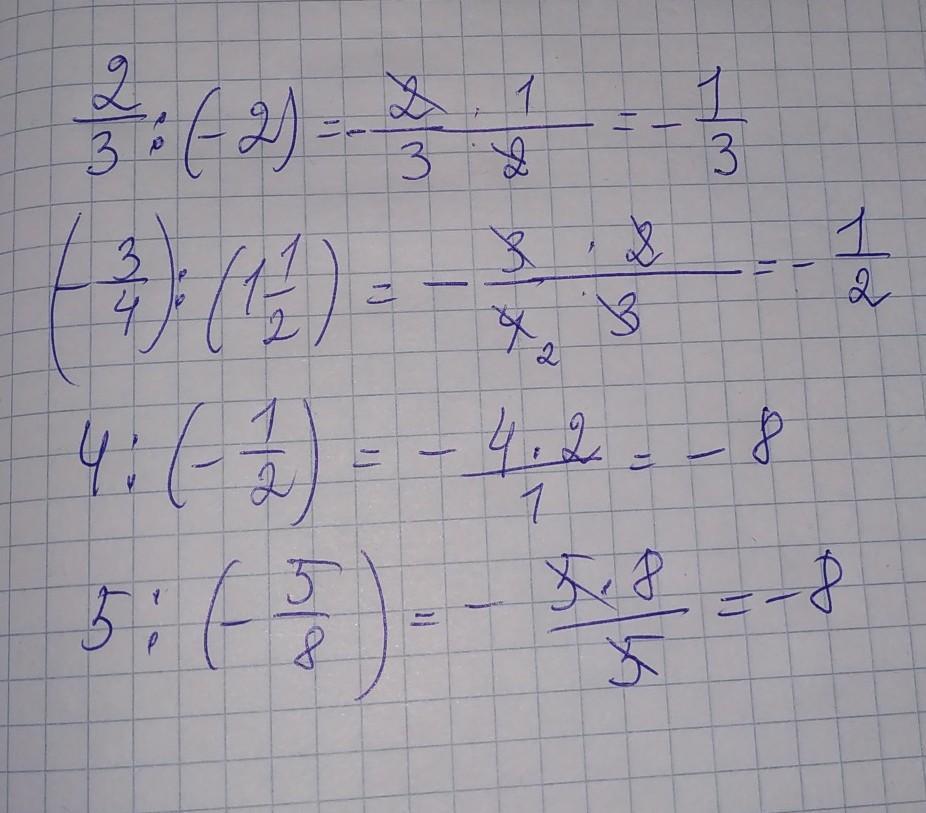 2/3 : (-2) = - 2 · 1 / 3 · 2 = - 1/3
(- 3/4) : (1 1/2) = - 3 · 2 / 4 2 · 3 = - 1/2
4 : (- 1/2) = - 4 · 2 / 1 = - 8
5 : (- 5/8) = - 5 · 8 / 5 = - 8